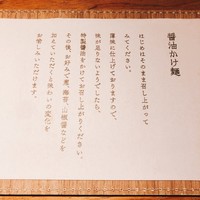 醤油かけ麺
はじめはそのまま召し上がって
みてください。
薄味に仕上げておりますので、
味が足りないようでしたら、
特製醤油をかけてお召し上がりください。
その後、お好みで煮干酢、山椒醤などを
加えていただくと味わいの変化を
お楽しみいただけます。